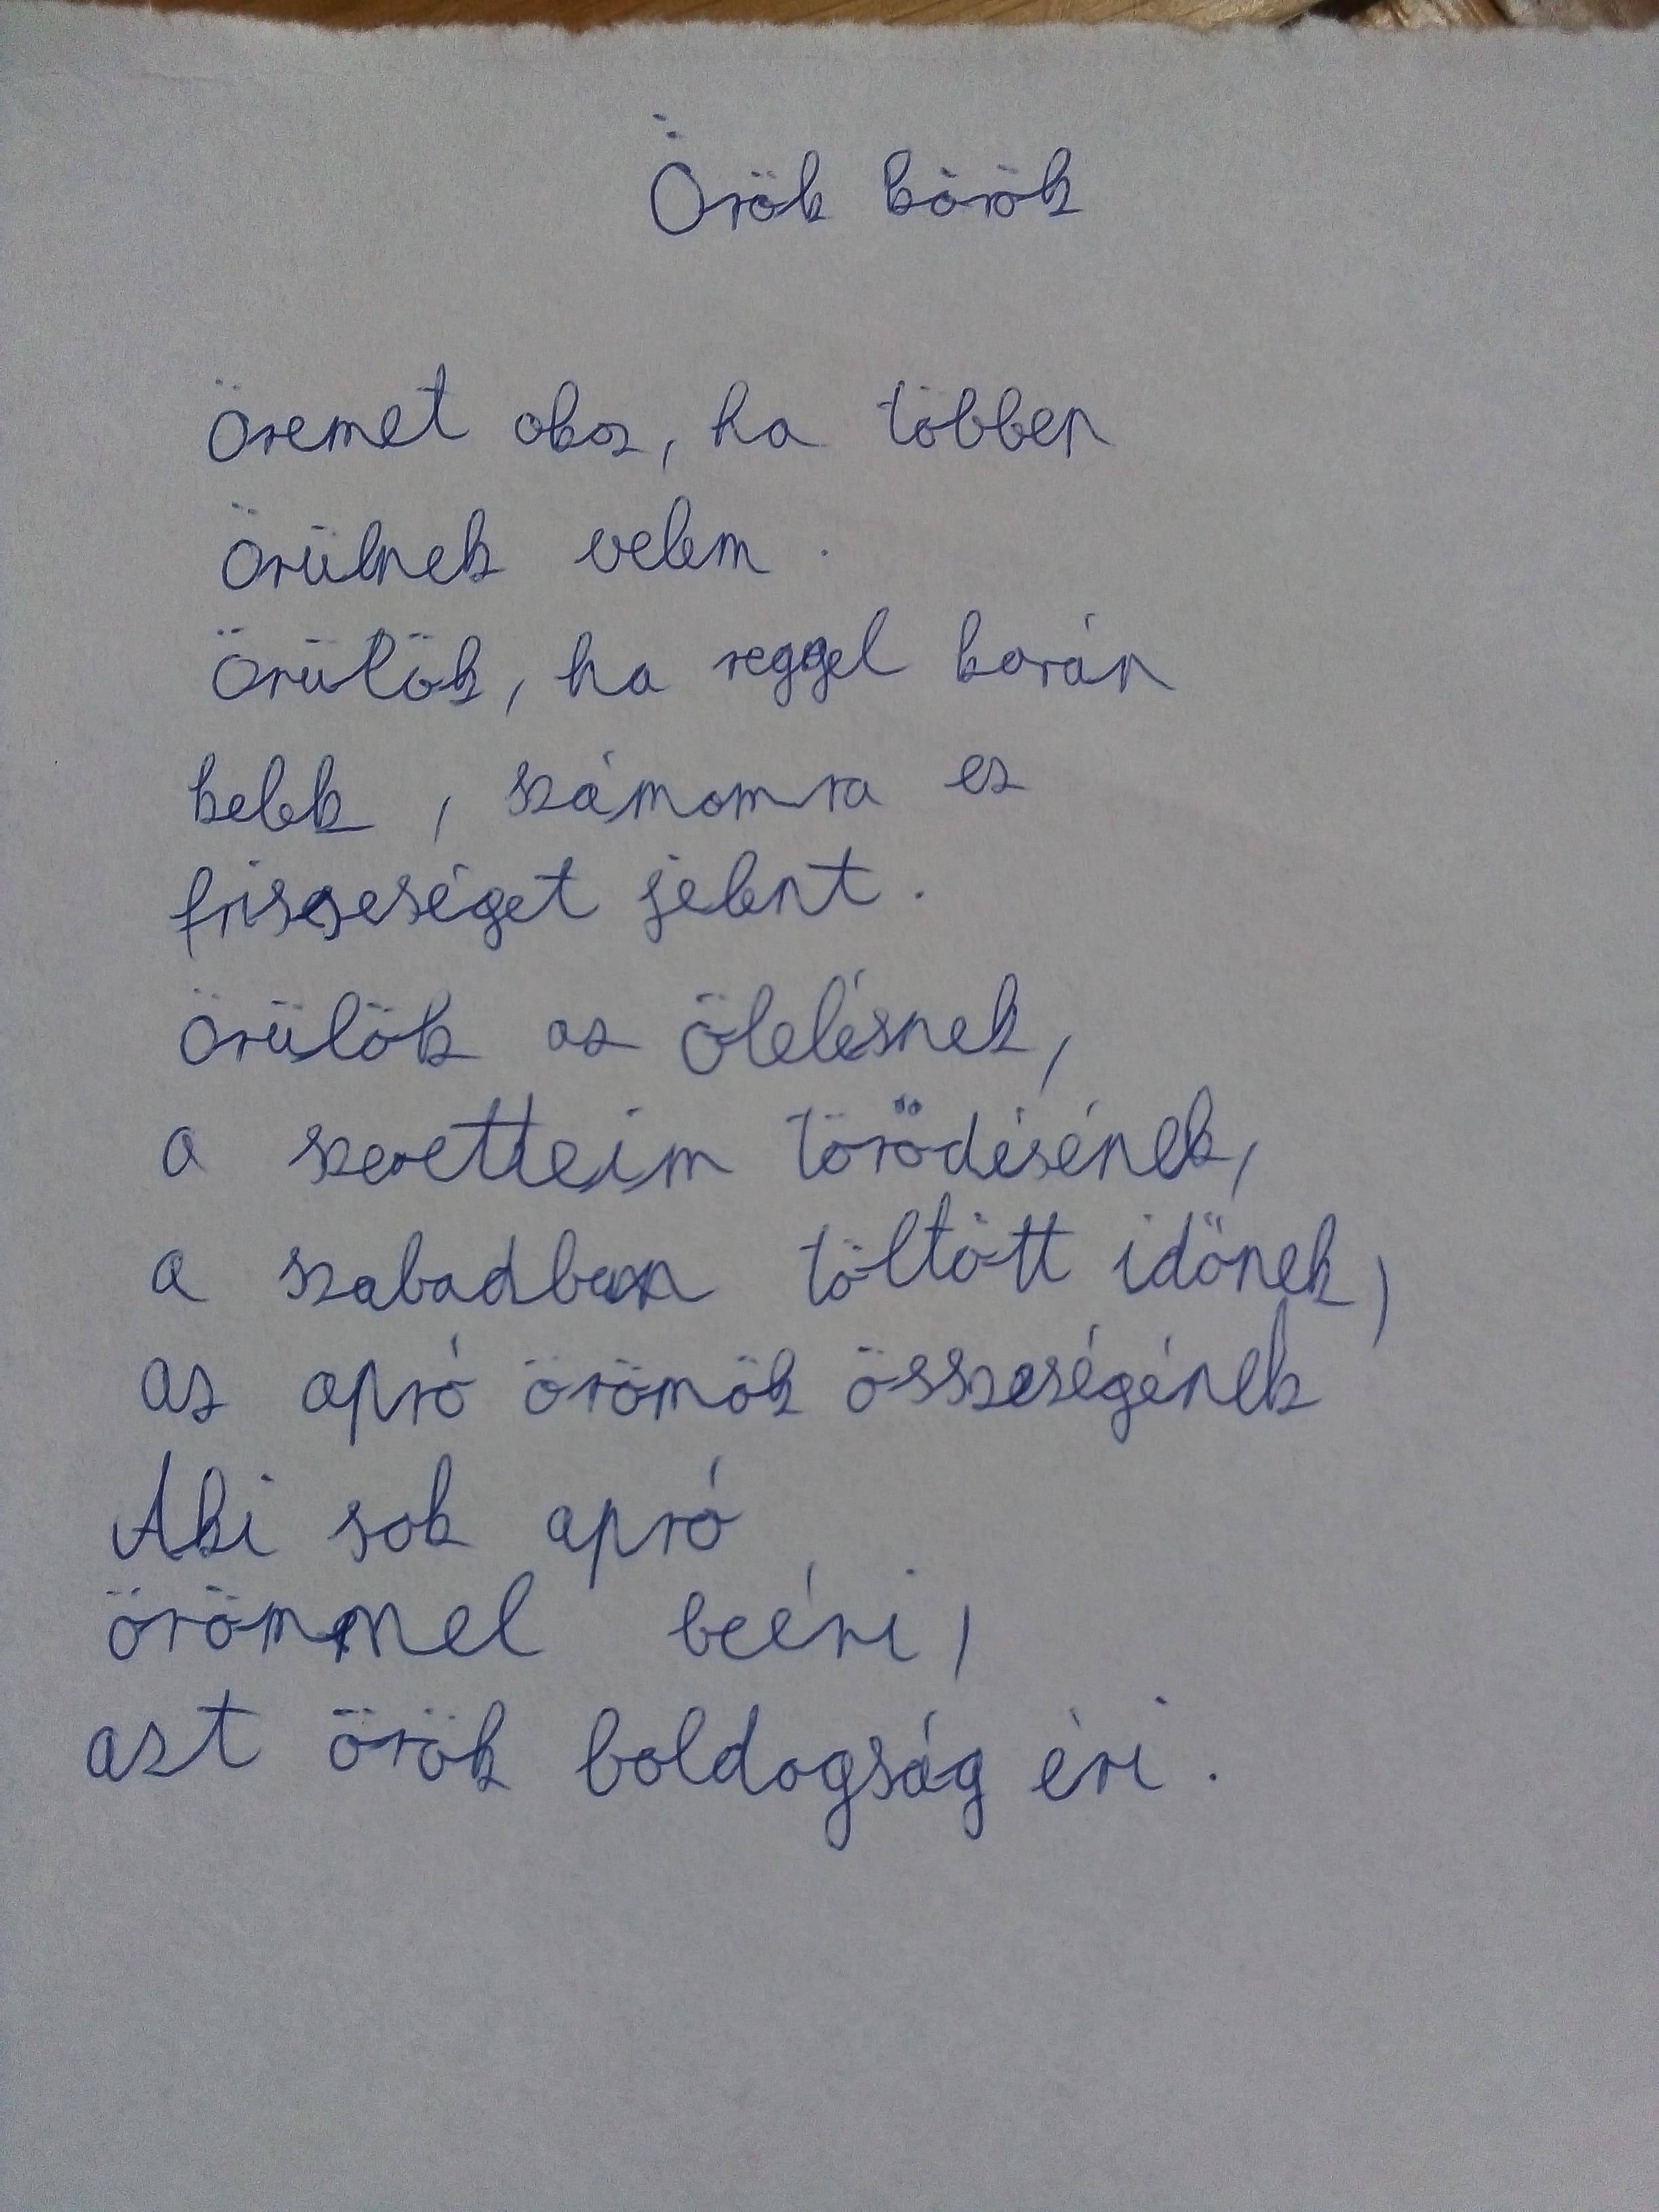 Örök körök
Öremet okoz, ha többen
Örülnek velem.
Örülök, ha reggel korán
kelek, számomra ez
frisseséget jelent.
Örülök az ölelésnek,
a szeretteim törődésének,
a szabadban töltött időnek,
az apró örömök összeségének
Aki sok apró
örömmel beéri,
azt örök boldogság éri.